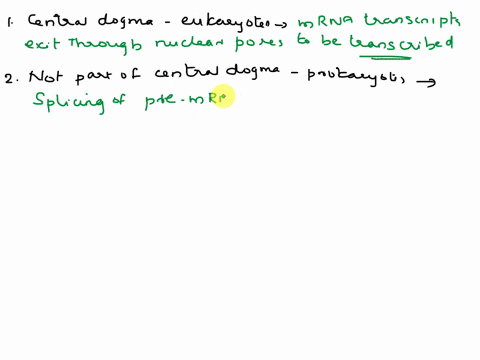 1. Central dogma - eukaryotes → mRNA transcripts
exit through nuclear pores to be transcribed
2. Not part of central dogma - prokaryotes →
Splicing of pre-mRN